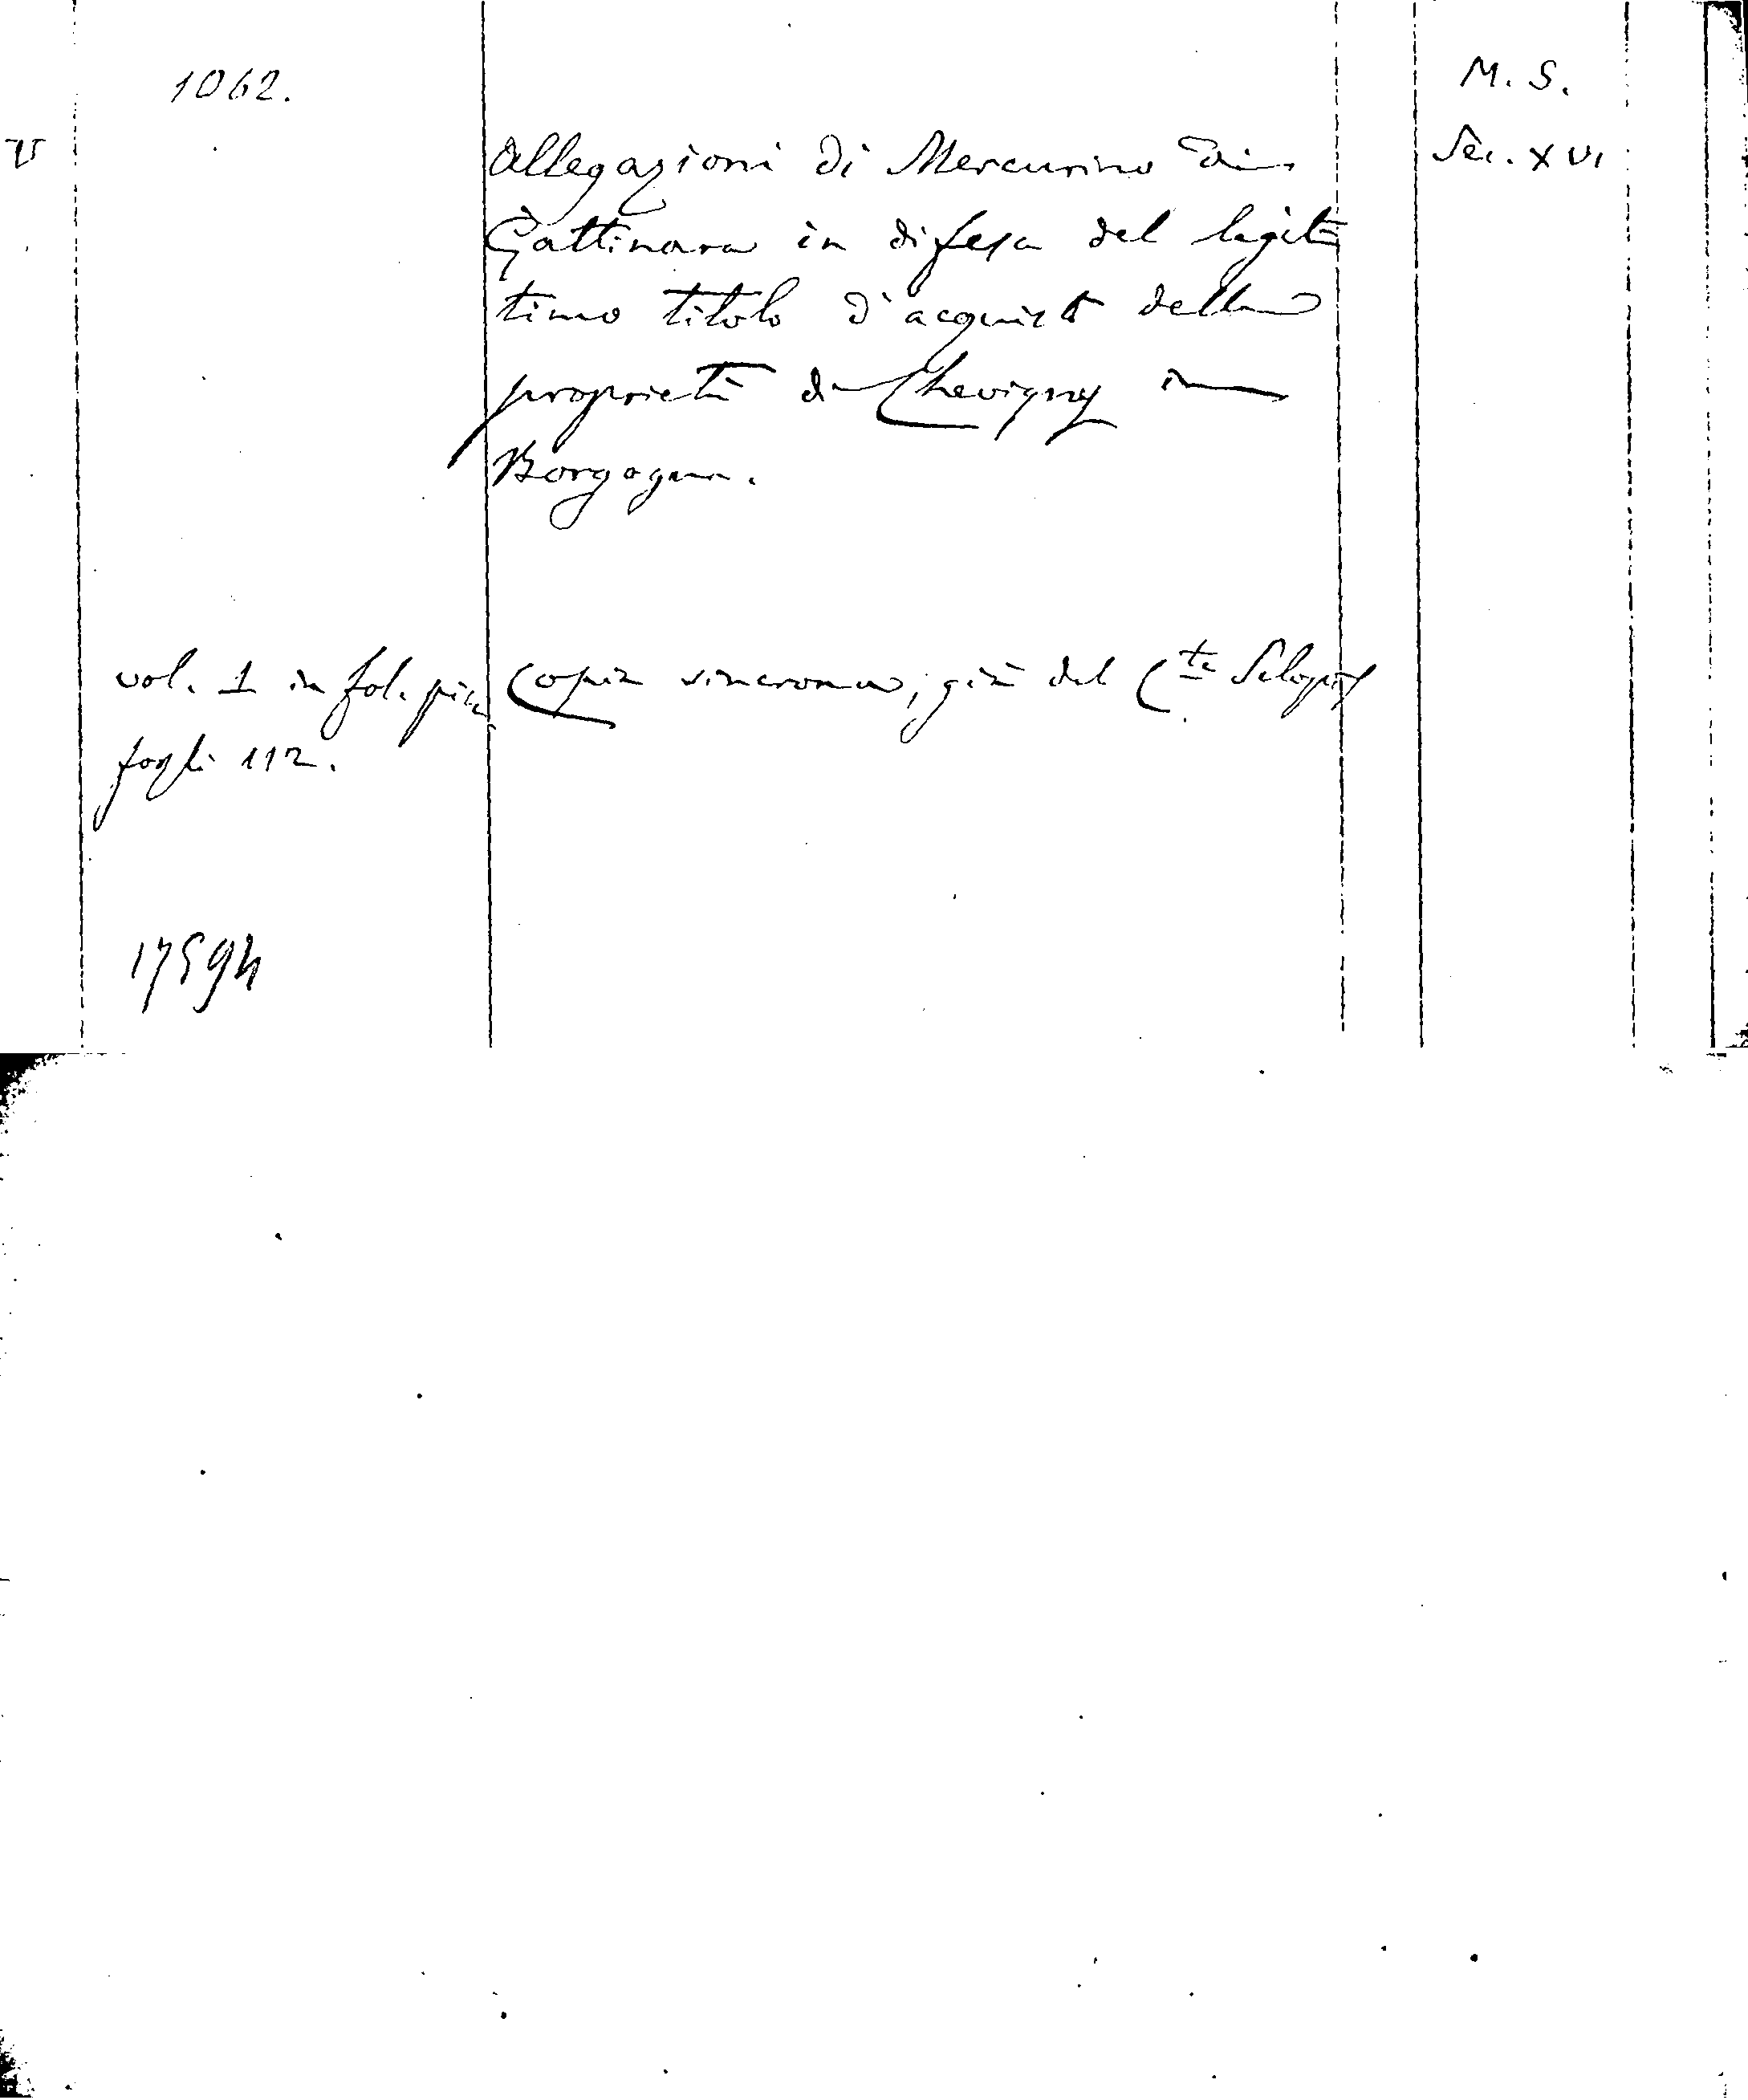 1062.
M. S.
V
Allegazioni di Mercurino di
Sec. XVI
Gattinara in difesa del legit
timo titolo d'acquisto della
proprietà di Chevigny in
Borgogna.
vol. 1 in fol. pic. Copia sincrona; già del Cte Sclopis
fogli 112.
17594